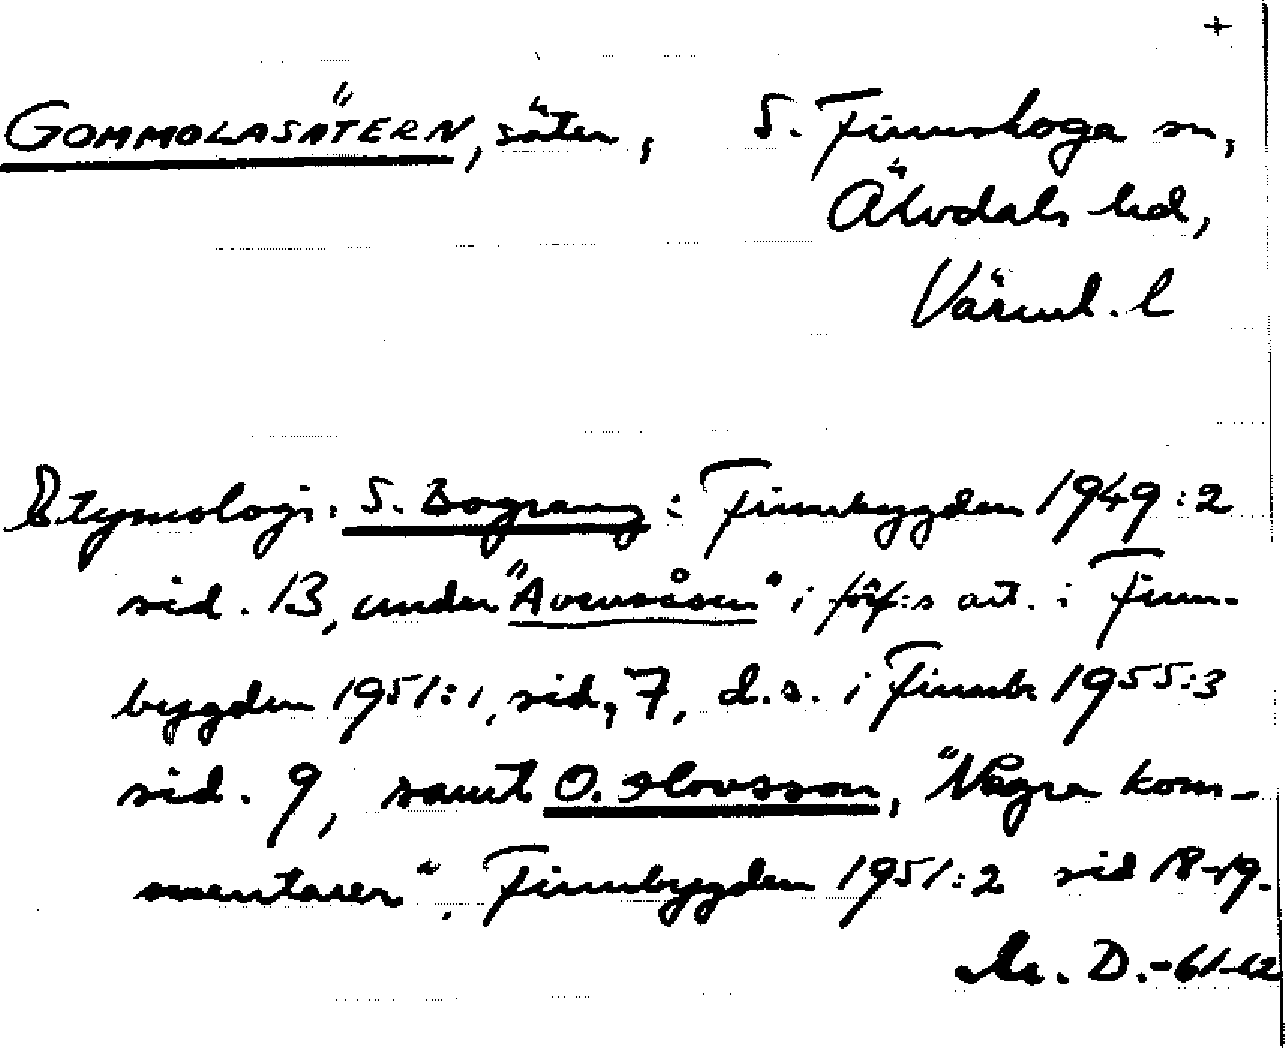 +
GOMMOLASÄTERN, säter, S. Finnskoga sn,
Älvdals hd,
Värml. l
Etymologi: S. Bograng: Finnbygden 1949:2
sid. 13, under "Avenåsen" i förf:s art. i Finn-
bygden 1951:1, sid, 7, d.s. i Finnb 1955:3
sid. 9, samt O. Olovsson, "Några kom-
mentarer". Finnbygden 1951:2 sid 18-19.
D.-61-62